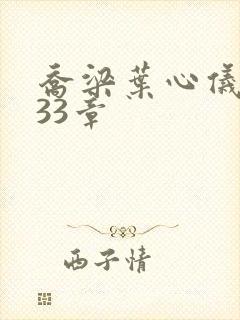 乔梁葉心儀
33章
西子情